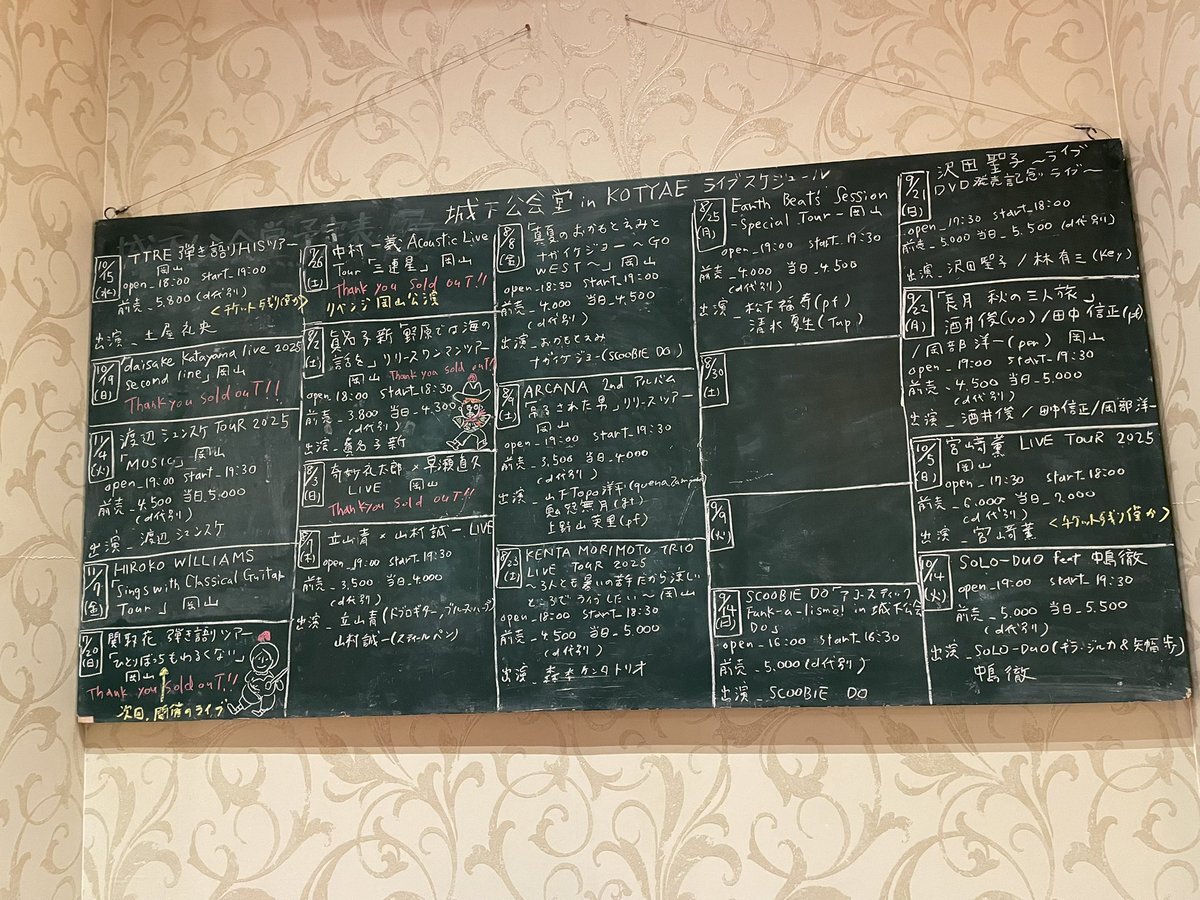 城下公会堂 in KOTYAE ライブスケジュール
10/15
(水)
TTRE 弾き語りHISツアー
岡山
open_18:00 start_19:00
前売_5,800(d代別)
<チケット残り僅か>
出演_土屋礼央
10/19
(日)
daisake Katayama live 2025
second line」岡山
Thank you sold ouT!!
11/4
(火)
渡辺シュンスケ TOUR 2025
「MUSIC」岡山
open_19:00 start_19:30
前売_4,500 当日_5,000
(d代別)
出演_渡辺シュンスケ
11/7
(金)
HIROKO WILLIAMS
「Sings with Classical Guitar
Tour」岡山
7/20
(日)
関取花 弾き語りツアー
「ひとりぼっちもわるくない」
岡山
Thank you sold ouT!!
次回、開催のライブ
7/26
(土)
中村一義 Acoustic Live
Tour「三連星」岡山
Thank you sold ouT!!
リベンジ岡山公演
8/2
(土)
眞名子新「野原では海の
話を」リリースワンマンツアー
岡山 Thank you sold ouT!!
open_18:00 start_18:30
前売_3,800 当日_4,300
(d代別)
出演_眞名子新
8/3
(日)
奇妙礼太郎 × 早瀬直久
LIVE 岡山
Thank you Sold ouT!!
(木)
立山青 × 山村誠一 LIVE
open_19:00 start_19:30
前売_3,500 当日_4,000
(d代別)
出演_立山青(ドブロギター、ブルースハープ)
山村誠一(スティールパン)
8/8
(金)
「真夏のおかもとえみと
ナガイケジョー 〜GO
WEST〜」岡山
open_18:30 start_19:00
前売_4,000 当日_4,500
(d代別)
出演_おかもとえみ
ナガイケジョー(SCOOBIE DO)
8/9
(土)
ARCANA 2nd アルバム
された男」リリースツアー
岡山
open_19:00 start_19:30
前売_3,500 当日_4,000
(d代別)
出演_山下Topo洋平(quena
(gt)
上野山英里(pf)
8/23
(土)
KENTA MORIMOTO TRIO
LIVE TOUR 2025
〜3人とも暑いの苦手だから涼しい
ところでライブしたい〜岡山
open_18:00 start_18:30
前売_4,500 当日_5,000
(d代別)
出演_森本ケンタトリオ
8/25
(月)
Earth Beats Session
-Special Tour-岡山
open_19:00 start_19:30
前売_4,000 当日_4,500
(d代別)
出演_松下福寿(pf)
清水夏生(Tap)
8/30
(土)
9/9
(火)
9/14
(日)
SCOOBIE DO「アコースティック
Funk-a-lismo! in 城下公会
Do」
open_16:00 start_16:30
前売_5,000(d代別)
出演_SCOOBIE DO
9/21
(日)
沢田聖子 〜ライブ
DVD発売記念ライブ〜
open_17:30 start_18:00
前売_5,000 当日_5,500(d代別)
出演_沢田聖子/林有三(Key)
9/22
(月)
「長月 秋の三人旅」
酒井俊(vo)/田中信正(pf)
/岡部洋一(per) 岡山
open_19:00 start_19:30
前売_4,500 当日_5,000
(d代別)
出演_酒井俊/田中信正/岡部洋一
10/5
(日)
宮崎薫 LIVE TOUR 2025
岡山
open_17:30 start_18:00
前売_6,000 当日_7,000
(d代別)
<チケット残り僅か>
出演_宮崎薫
10/14
(火)
SOLO-DUO feat 鴨徹
open_19:00 start_19:30
前売_5,000 当日_5,500
(d代別)
出演_SOLO-DUO(ギラ・ジルカ&矢幅歩)
鴨徹